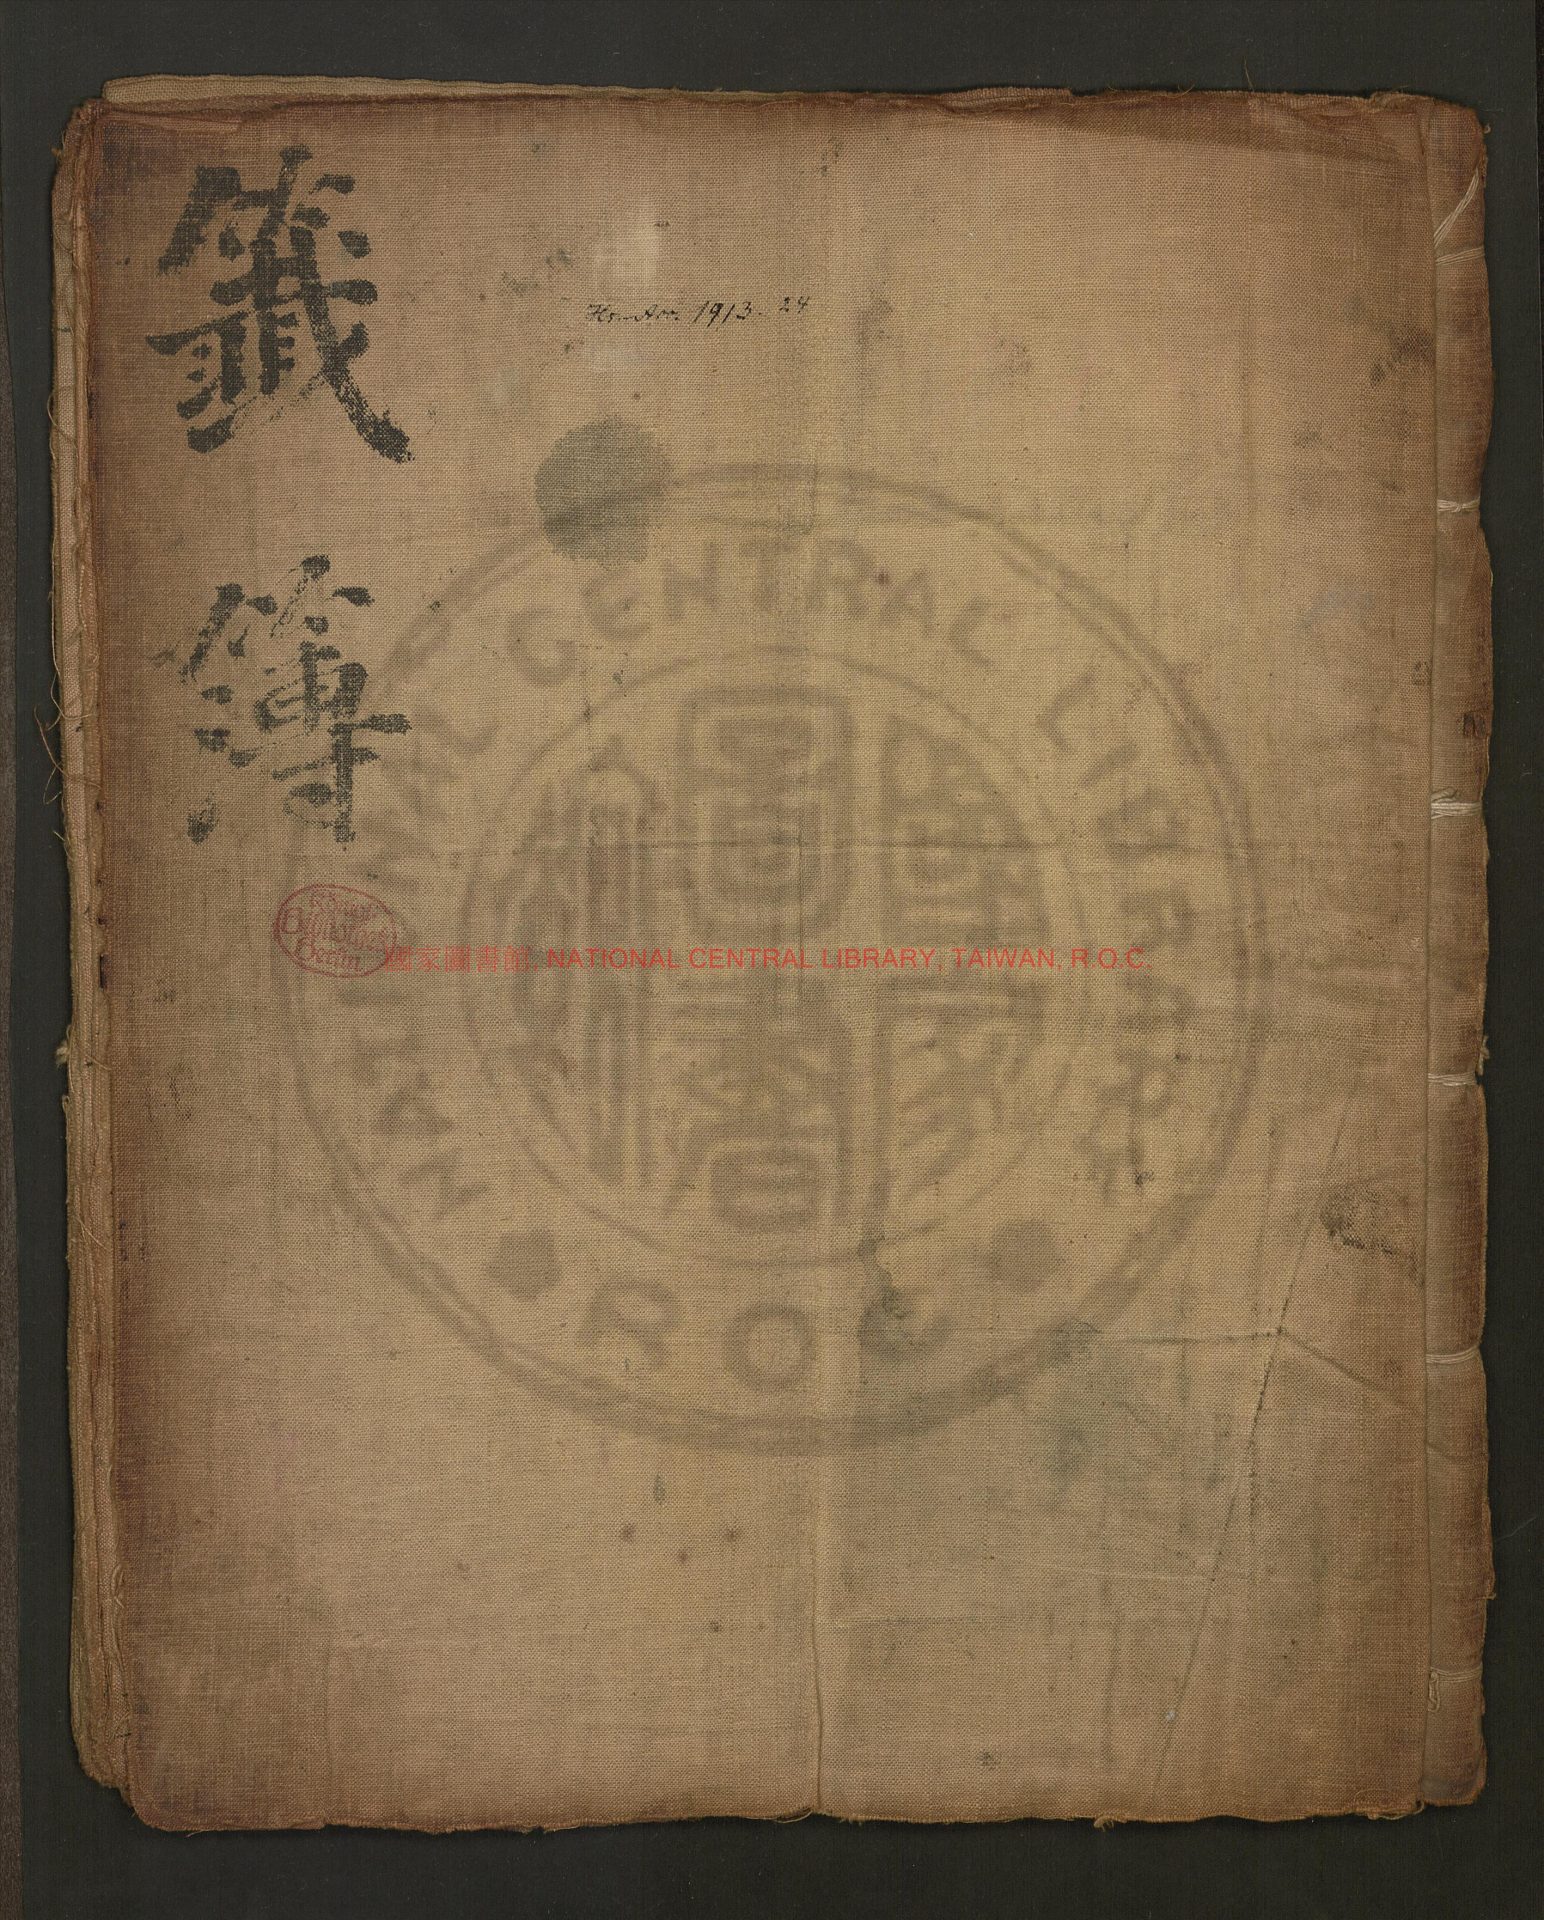 籤簿
Hs.-Acc. 1913. 24
Königl.
Bibliothek
Berlin
國家圖書館, NATIONAL CENTRAL LIBRARY, TAIWAN, R.O.C.
NATIONAL CENTRAL LIBRARY
TAIWAN
R O C